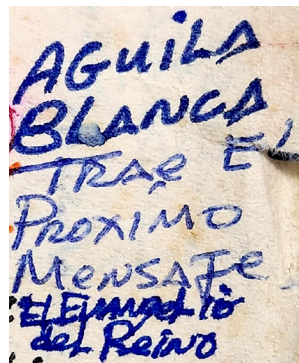 AGUiLA
BLANCA
TRAe El
PROXIMO
MeNSAJe.
El EvANgelio
del ReiNO